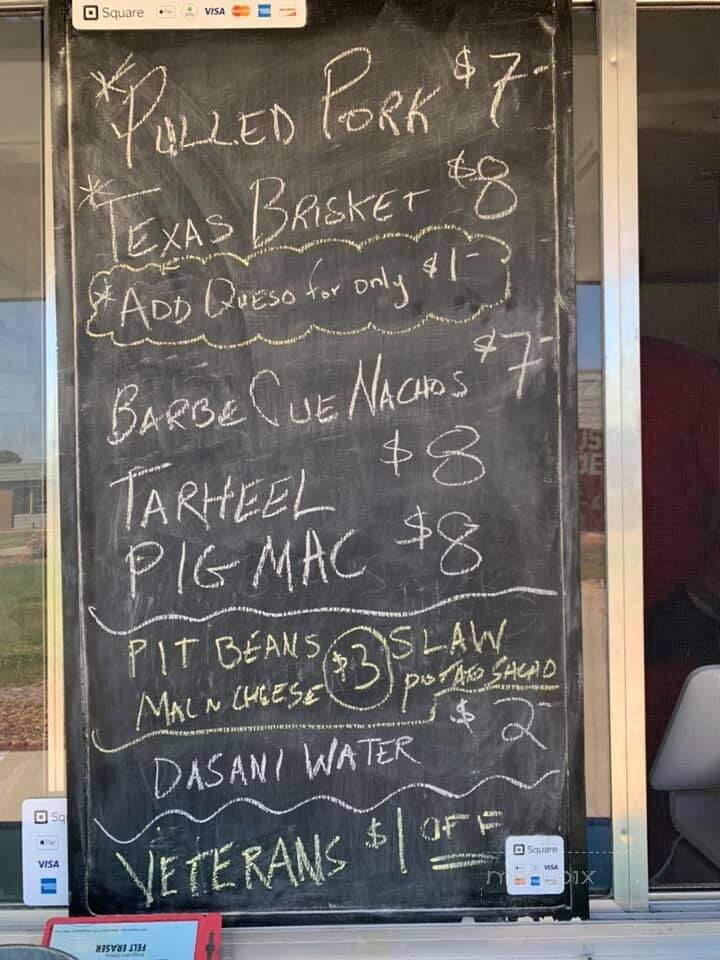 Square Pay VISA
*PULLED PORK $7-
*TEXAS BRISKET $8
*ADD QUESO for only $1-
BARBECUE NACHOS $7-
TARHEEL $8
PIG MAC $8
PIT BEANS $3 SLAW
MAC N CHEESE POTATO SALAD
DASANI WATER $2-
VETERANS $1 OFF
Square
VISA
Sq
Pay
VISA
FELT ERASER